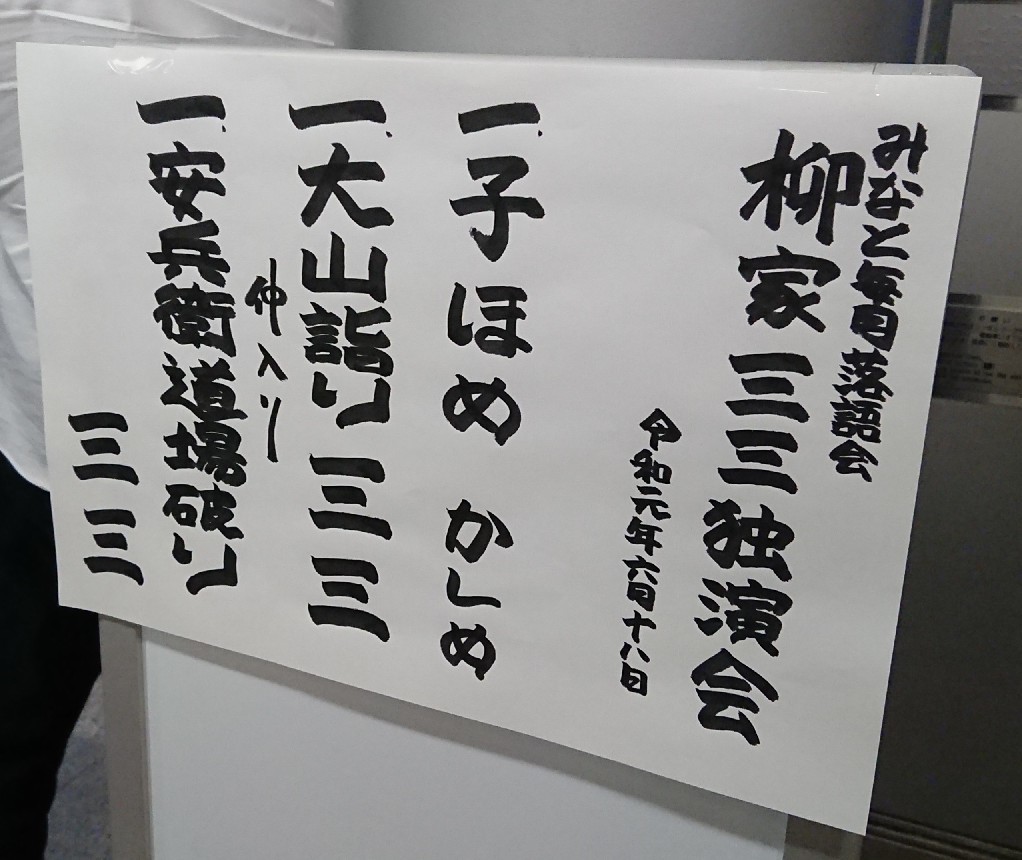 みなと毎月落語会
柳家三三独演会
令和元年六月十八日
一、子ほめ かしめ
一、大山詣り 三三
仲入り
一、安兵衛道場破り
三三